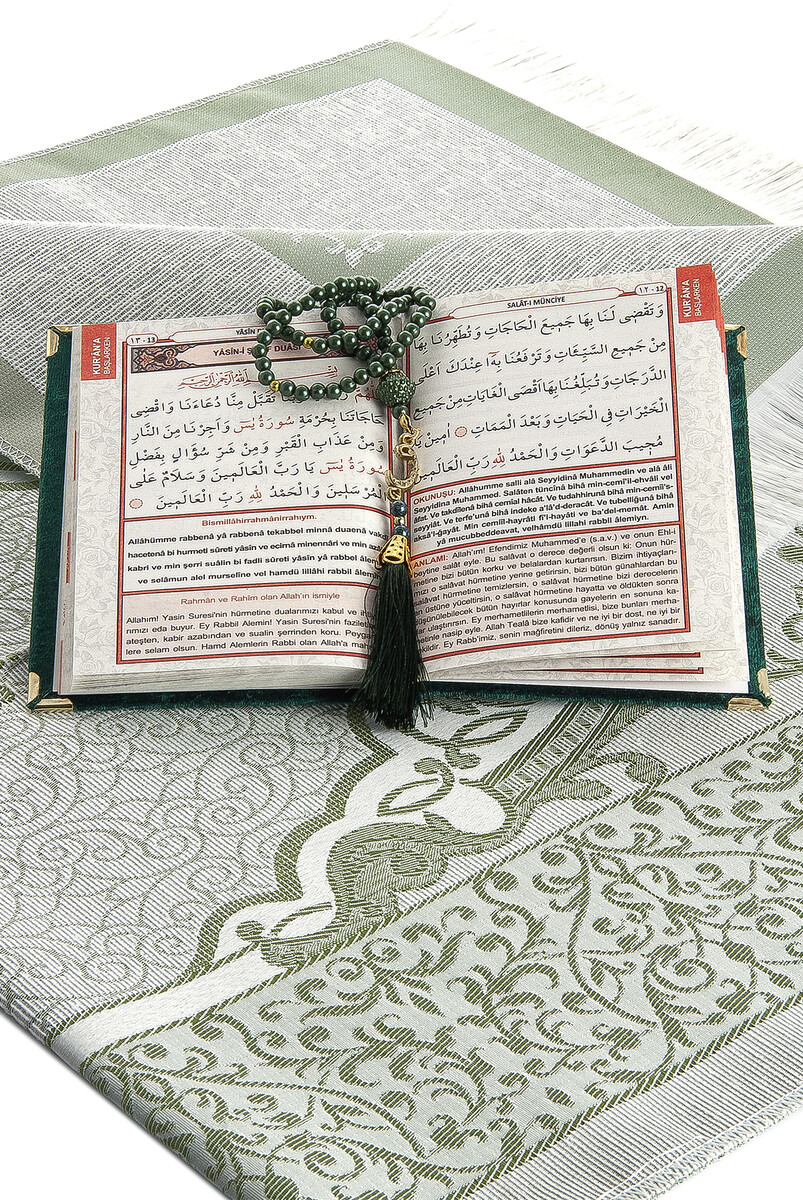 KUR'ÂN'A
BAŞLARKEN
١٣ - 13
YÂSİN-İ
DUÂSI
تَقَبَّلْ مِنَّا دُعَاءَنَا وَاقْضِ
حَاجَاتَنَا بِحُرْمَةِ سُورَةِ يٰسٓ وَاَجِرْنَا مِنَ النَّارِ
وَمِنْ عَذَابِ الْقَبْرِ وَمِنْ شَرِّ سُؤَالٍ بِفَضْلِ
سُورَةِ يٰسٓ يَا رَبَّ الْعَالَمِينَ وَسَلَامٌ عَلَى
الْمُرْسَلِينَ وَالْحَمْدُ لِلّٰهِ رَبِّ الْعَالَمِينَ
Bismillâhirrahmânirrahıym.
Allâhümme rabbenâ yâ rabbenâ tekabbel minnâ duaenâ vakdi
hacetenâ bi hurmeti sûreti yâsîn ve ecirnâ minennâri ve min azâ
kabri ve min şerri suâlin bi fadli sûreti yâsîn yâ rabbil âlem
ve selâmun alel murselîne vel hamdü lillâhi rabbil âlemîn
Rahmân ve Rahîm olan Allah'ın ismiyle
Allahım! Yasin Suresi'nin hürmetine dualarımızı kabul ve ih
rımızı eda buyur. Ey Rabbil Alemin! Yasin Suresi'nin faziletiy
ateşten, kabir azabından ve sualin şerrinden koru. Peyga
lere selam olsun. Hamd Alemlerin Rabbi olan Allah'a mah
SALÂT-I MÜNCİYE
١٢ - 12
KUR'ÂN'A
BAŞLARKEN
وَتَقْضِى لَنَا بِهَا جَمِيعَ الْحَاجَاتِ وَتُطَهِّرُنَا بِهَا
مِنْ جَمِيعِ السَّيِّئَاتِ وَتَرْفَعُنَا بِهَا عِنْدَكَ اَعْلَى
الدَّرَجَاتِ وَتُبَلِّغُنَا بِهَا اَقْصَى الْغَايَاتِ مِنْ جَمِيعِ
الْخَيْرَاتِ فِى الْحَيَاتِ وَبَعْدَ الْمَمَاتِ اٰمِينَ
مُجِيبَ الدَّعَوَاتِ وَالْحَمْدُ لِلّٰهِ رَبِّ الْعَالَمِينَ
OKUNUŞU: Allâhumme salli alâ Seyyidinâ Muhammedin ve alâ âli
Seyyidinâ Muhammed. Salâten tüncînâ bihâ min-cemî'il-ehvâli vel
âfat. Ve takdîlenâ bihâ cemîal hâcât. Ve tudahhirunâ bihâ min-cemîi's-
seyyiât. Ve terfe'unâ bihâ indeke a'lâ'd-deracât. Ve tubelliğunâ bihâ
aksâ'l-ğayât. Min cemîil-hayrâti fi'l-hayâti ve ba'del-memât. Amin
yâ mucubbeddeavat, velhâmdü lillahi rabbil âlemiyn.
ANLAMI: Allah'ım! Efendimiz Muhammed'e (s.a.v.) ve onun Ehl-i
beytine salât eyle. Bu salâvat o derece değerli olsun ki: Onun hür-
metine bizi bütün korku ve belalardan kurtarırsın. Bizim ihtiyaçları-
mızı o salâvat hürmetine yerine getirsin, bizi bütün günahlardan bu
salâvat hürmetine temizlersin, o salâvat hürmetine bizi derecelerin
en üstüne yüceltirsin, o salâvat hürmetine hayatta ve öldükten sonra
düşünülebilecek bütün hayırlar konusunda gayelerin en sonuna ka-
dar ulaştırırsın. Ey merhametlilerin merhametlisi, bize bunları merha-
metinle nasip eyle. Allah Teala bize kafidir ve ne iyi bir dost, ne iyi bir
vekildir. Ey Rabb'imiz, senin mağfiretini dileriz, dönüş yalnız sanadır.